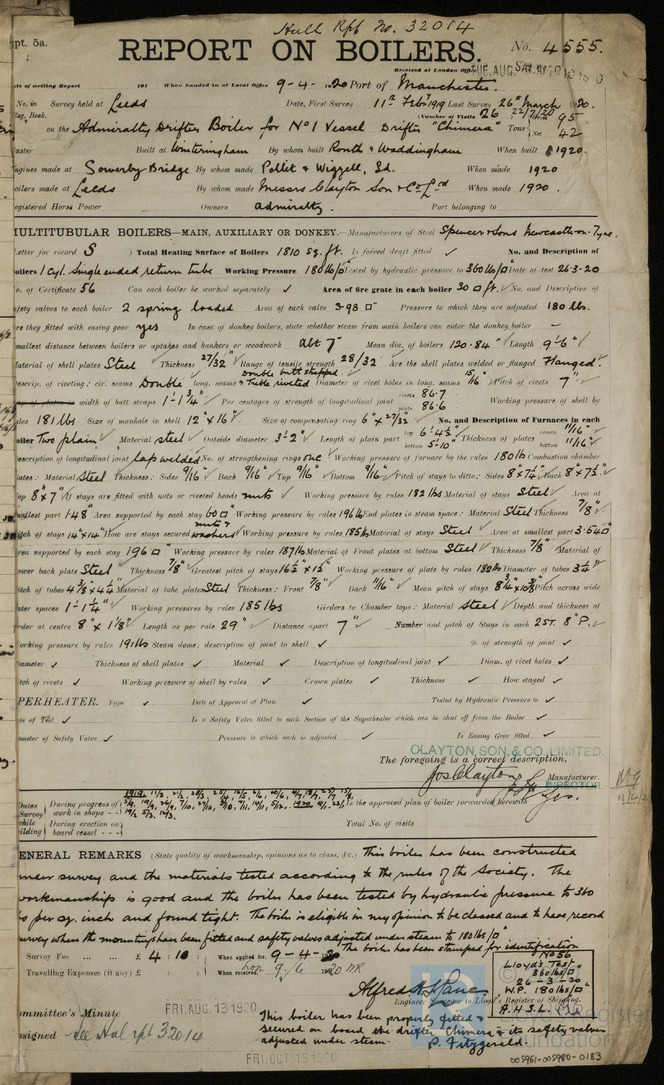 Hull Rpt No. 32014
Rpt. 5a.
REPORT ON BOILERS.
No. 4555.
Received at London Office TUE. AUG.
Date of writing Report 191 When handed in at Local Office 9-4-1920 Port of Manchester.
No. in Survey held at Leeds Date, First Survey 11th Feby 1919 Last Survey 26th March 1920.
Reg. Book. (Number of Visits 26
on the Admiralty Drifter Boiler for No 1 Vessel Drifter "Chimera" Tons 95
Net 42
Master Built at Winteringham By whom built Routh & Waddingham When built 1920.
Engines made at Sowerby Bridge By whom made Pollit & Wigzell, Ld. When made 1920
Boilers made at Leeds By whom made Messrs Clayton Son & Co Ld When made 1920.
Registered Horse Power Owners Admiralty. Port belonging to
MULTITUBULAR BOILERS—MAIN, AUXILIARY OR DONKEY.—Manufacturers of Steel Spencer & Sons Newcastle-on-Tyne.
Letter for record S ) Total Heating Surface of Boilers 1810 sq. ft. Is forced draft fitted ✓ No. and Description of
Boilers 1 Cyl. Single ended return tube Working Pressure 180 lb/□" Tested by hydraulic pressure to 360 lb/□ Date of test 26-3-20
No. of Certificate 56 Can each boiler be worked separately ✓ Area of fire grate in each boiler 30 □ ft. No. and Description of
safety valves to each boiler 2 spring loaded Area of each valve 3.98 □" Pressure to which they are adjusted 180 lbs.
Are they fitted with easing gear yes In case of donkey boilers, state whether steam from main boilers can enter the donkey boiler –
Smallest distance between boilers or uptakes and bunkers or woodwork abt 7" Mean dia. of boilers 120.84" Length 9'-6"
Material of shell plates Steel Thickness 27/32" Range of tensile strength 28/32 Are the shell plates welded or flanged Flanged.
Descrip. of riveting: cir. seams Double long. seams Double butt strapped & Treble riveted Diameter of rivet holes in long. seams 15/16" Pitch of rivets 7"
width of butt straps 1'-1 3/4" Per centages of strength of longitudinal joint rivets 86.7 plate 86.6 Working pressure of shell by
rules 181 lbs Size of manhole in shell 12" x 16" Size of compensating ring 6" x 27/32 No. and Description of Furnaces in each
boiler Two plain Material steel Outside diameter 3'-2" Length of plain part top 6'-4 1/2" bottom 5'-10" Thickness of plates crown 11/16" bottom 11/16"
Description of longitudinal joint lap welded No. of strengthening rings one Working pressure of furnace by the rules 180 lb Combustion chamber
plates: Material Steel Thickness: Sides 9/16" Back 9/16" Top 9/16" Bottom 9/16" Pitch of stays to ditto: Sides 8" x 7 1/4" Back 8" x 7 1/2"
Top 8" x 7" If stays are fitted with nuts or riveted heads nuts Working pressure by rules 182 lbs Material of stays Steel Area at
smallest part 1.48 Area supported by each stay 60 □" Working pressure by rules 196 lb End plates in steam space: Material Steel Thickness 7/8"
Pitch of stays 14" x 14" How are stays secured nuts & washers Working pressure by rules 185 lb Material of stays Steel Area at smallest part 3.54 □"
Area supported by each stay 196 □" Working pressure by rules 187 lb Material of Front plates at bottom Steel Thickness 7/8" Material of
Lower back plate Steel Thickness 7/8" Greatest pitch of stays 16 1/2" x 12" Working pressure of plate by rules 180 lb Diameter of tubes 3 1/4"
Pitch of tubes 4 3/8" x 4 1/4" Material of tube plates Steel Thickness: Front 7/8" Back 11/16" Mean pitch of stays Pitch across wide
water spaces 1'-1 1/4" Working pressures by rules 185 lbs Girders to Chamber tops: Material steel Depth and thickness of
girder at centre 8" x 1 1/8" Length as per rule 29" Distance apart 7" Number and pitch of Stays in each 2 ST. 8" P.
Working pressure by rules 191 lbs Steam dome: description of joint to shell ✓ % of strength of joint ✓
Diameter ✓ Thickness of shell plates ✓ Material ✓ Description of longitudinal joint ✓ Diam. of rivet holes ✓
Pitch of rivets ✓ Working pressure of shell by rules ✓ Crown plates ✓ Thickness ✓ How stayed ✓
SUPERHEATER. Type ✓ Date of Approval of Plan ✓ Tested by Hydraulic Pressure to ✓
Date of Test ✓ Is a Safety Valve fitted in each Section of the Superheater which can be shut off from the Boiler ✓
Diameter of Safety Valve ✓ Pressure to which each is adjusted ✓ Is Easing Gear fitted ✓
CLAYTON, SON, & CO., LIMITED
The foregoing is a correct description,
Jos Clayton Manufacturer.
DIRECTOR
Dates of Survey while building
During progress of work in shops - - 1919
Is the approved plan of boiler forwarded herewith Yes.
During erection on board vessel - - - Total No. of visits
GENERAL REMARKS (State quality of workmanship, opinions as to class, &c.) This boiler has been constructed
under survey and the materials tested according to the rules of the Society. The
workmanship is good and the boiler has been tested by hydraulic pressure to 360
lbs per sq. inch and found tight. The boiler is eligible in my opinion to be classed and to have record
survey when the mountings have been fitted and safety valves adjusted under steam to 180 lbs/□"
The boiler has been stamped for identification
Survey Fee ... ... £ 4 : 10 : When applied for, 9-4-1920
Travelling Expenses (if any) £ : : When received, 9/6 1920
No 56
Lloyd's Test
360 lbs/□
26-3-20
W.P. 180 lbs/□"
A.H.S.L.
Engineer Surveyor to Lloyd's Register of Shipping.
FRI. AUG. 13 1920
Committee's Minute
Assigned See Hul rpt 32014
This boiler has been properly fitted &
secured on board the drifter Chimera & its safety valves
adjusted under steam. P. Fitzgerald
FRI. OCT 15 1920
005961-005980-0183